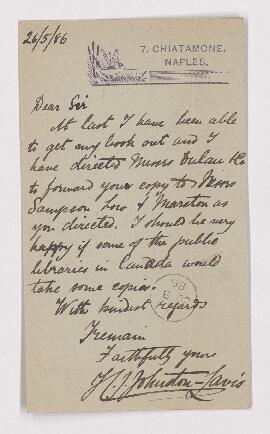 26/5/86
7, CHIATAMONE,
NAPLES.
Dear Sir
At last I have been able
to get my book out and I
have directed Messrs Dulau & Co
to forward your copy to Messrs
Sampson Low & Marston as
you directed. I should be very
happy if some of the public
libraries in Canada would
take some copies.
With kindest regards
I remain
Faithfully yours
H. J. Johnston-Lavis